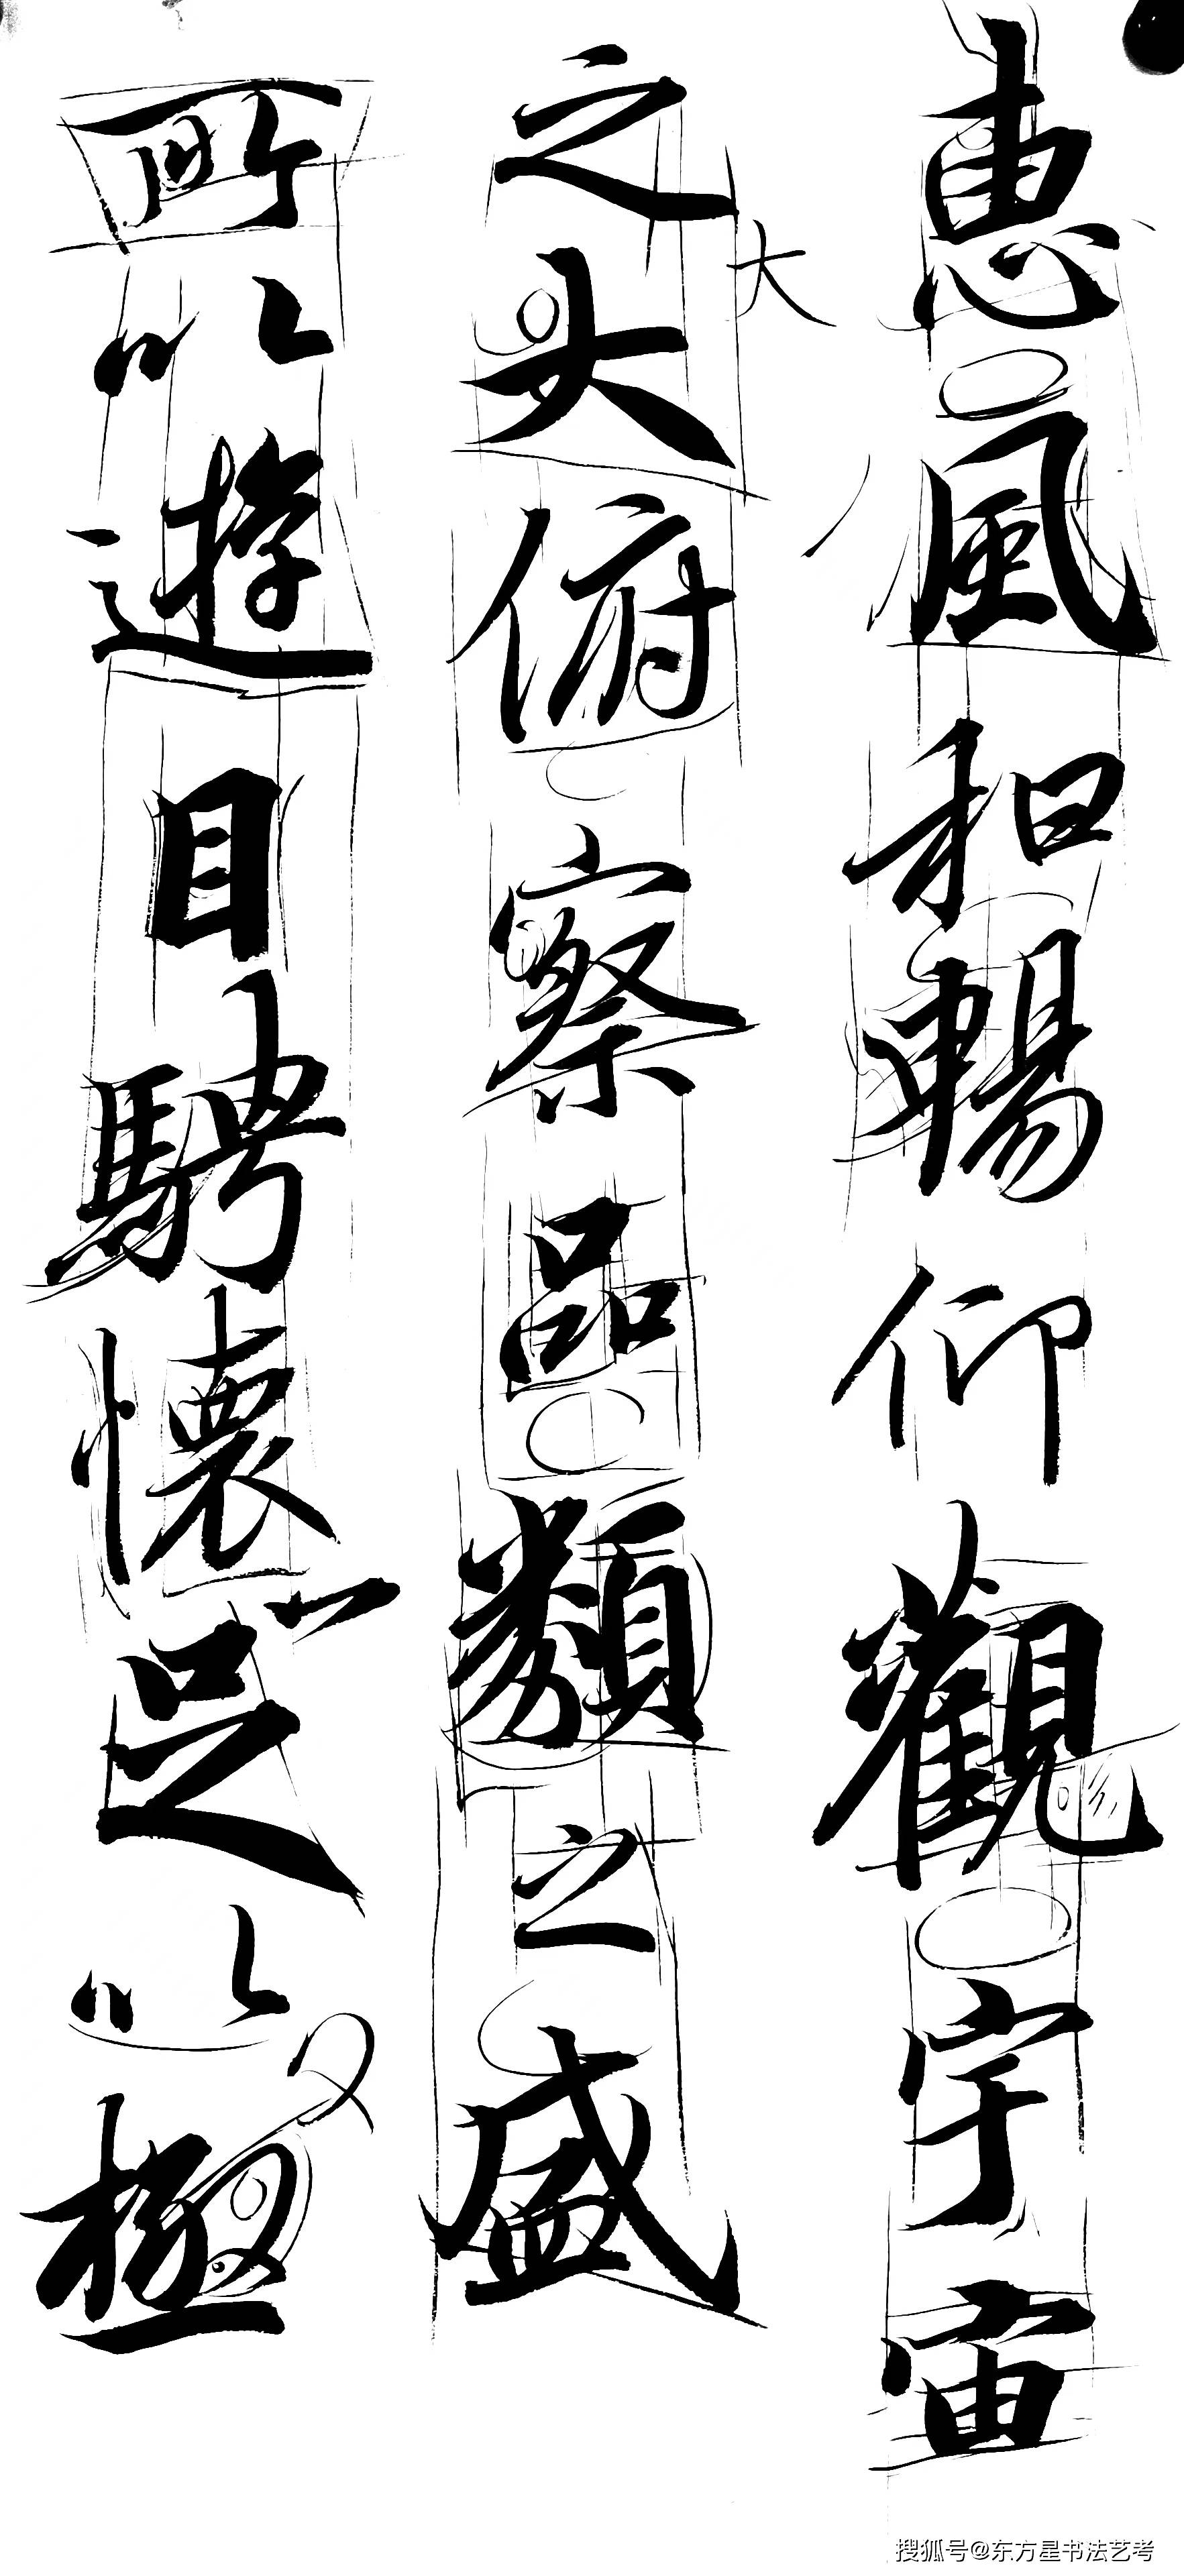 惠風和暢仰觀宇宙
大
之大俯察品類之盛
所以遊目騁懷足以極
又
搜狐号@东方星书法艺考